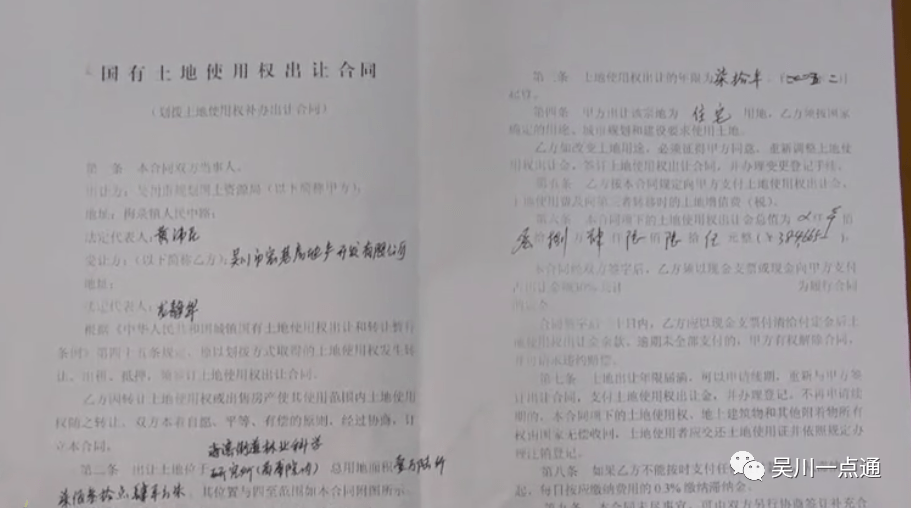 国有土地使用权出让合同
（划拨土地使用权补办出让合同）
第一条 本合同双方当事人。
出让方：吴川市规划国土资源局（以下简称甲方）
地址：梅菉镇人民中路
法定代表人：
受让方：（以下简称乙方）吴川市宏基房地产开发有限公司
地址：
法定代表人：
根据《中华人民共和国城镇国有土地使用权出让和转让暂行
条例》第四十五条规定，原以划拨方式取得的土地使用权发生转
让、出租、抵押，须签订土地使用权出让合同。
乙方因转让土地使用权或出售房产使其使用范围内土地使用
权随之转让，双方本着自愿、平等、有偿的原则，经过协商，订
立本合同。
第二条 出让土地位于 林业科学
研究所 总用地面积壹万陆仟
柒佰叁拾点肆平方米。其位置与四至范围如本合同附图所示。
土地使用权出让的年限为柒拾年
起算。
第四条 甲方出让该宗地为 住宅 用地，乙方须按国家
确定的用途、城市规划和建设要求使用土地。
乙方如改变土地用途，必须征得甲方同意，重新调整土地使
用权出让金，签订土地使用权出让合同，并办理变更登记手续。
第五条 乙方按本合同规定向甲方支付土地使用权出让金、
土地使用费及向第三者转移时的土地增值费（税）。
第六条 本合同项下的土地使用权出让金总值为
捌 万 肆 仟 陆 佰 陆 拾 伍 元整
本合同经双方签字后，乙方须以现金支票或现金向甲方支付
占出让金额30% 共计 为履行合同
的定金。
合同签字后 十日内，乙方应以现金支票付清给付定金后土
地使用权出让金余款，逾期未全部支付的，甲方有权解除合同，
并可请求违约赔偿。
第七条 土地出让年限届满，可以申请续期，重新与甲方签
订出让合同，支付土地使用权出让金，并办理登记。不再申请续
期的，本合同项下的土地使用权、地上建筑物和其他附着物所有
权由国家无偿收回，土地使用者应交还土地使用证并依照规定办
理注销登记。
第八条 如果乙方不能按时支付任
起，每日按应缴纳费用的0.3%缴纳滞纳金。
第九条 本合同未尽事宜，可由双方另行协商签订补充合
吴川一点通